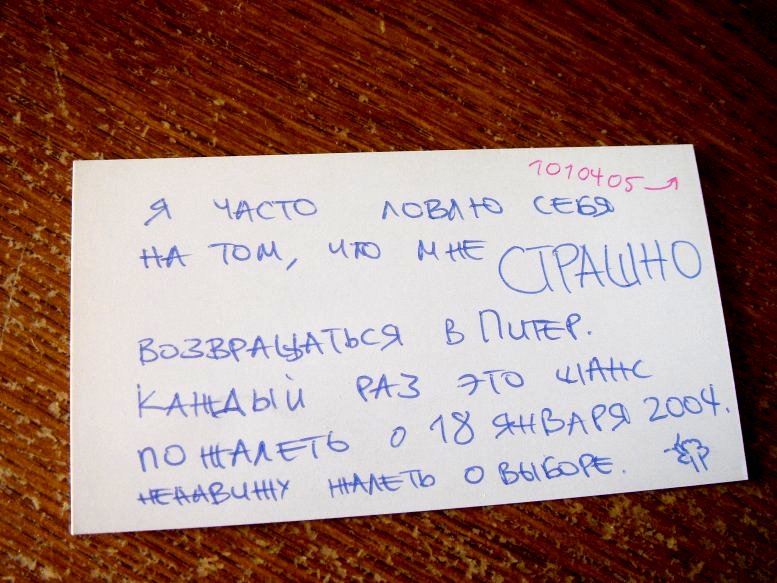 1010405
Я ЧАСТО ЛОВЛЮ СЕБЯ
НА ТОМ, ЧТО МНЕ СТРАШНО
ВОЗВРАЩАТЬСЯ В ПИТЕР.
КАЖДЫЙ РАЗ ЭТО ШАНС
ПОЖАЛЕТЬ О 18 ЯНВАРЯ 2004.
НЕНАВИЖУ ЖАЛЕТЬ О ВЫБОРЕ.